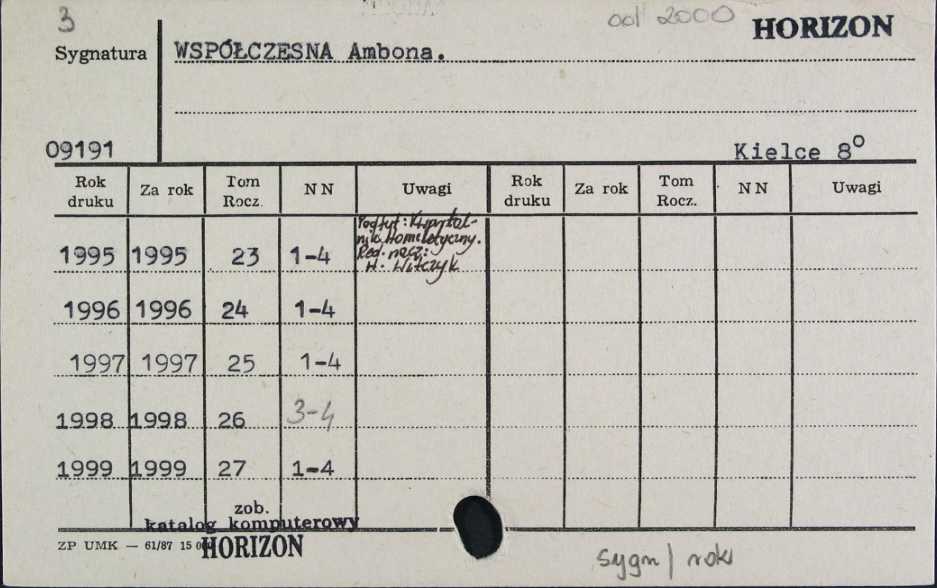 3
od 2000
HORIZON
Sygnatura
WSPÓŁCZESNA Ambona.
09191
Kielce 8°
Rok druku Za rok Tom Rocz. NN Uwagi Rok druku Za rok Tom Rocz. NN Uwagi
Podtyt: Kwartal-
nik Homiletyczny.
Red. nacz:
H. Witczyk
1995 1995 23 1-4
1996 1996 24 1-4
1997 1997 25 1-4
1998 1998 26 3-4
1999 1999 27 1-4
zob.
katalog komputerowy
ZP UMK — 61/87 15 0
HORIZON
sygn / rok